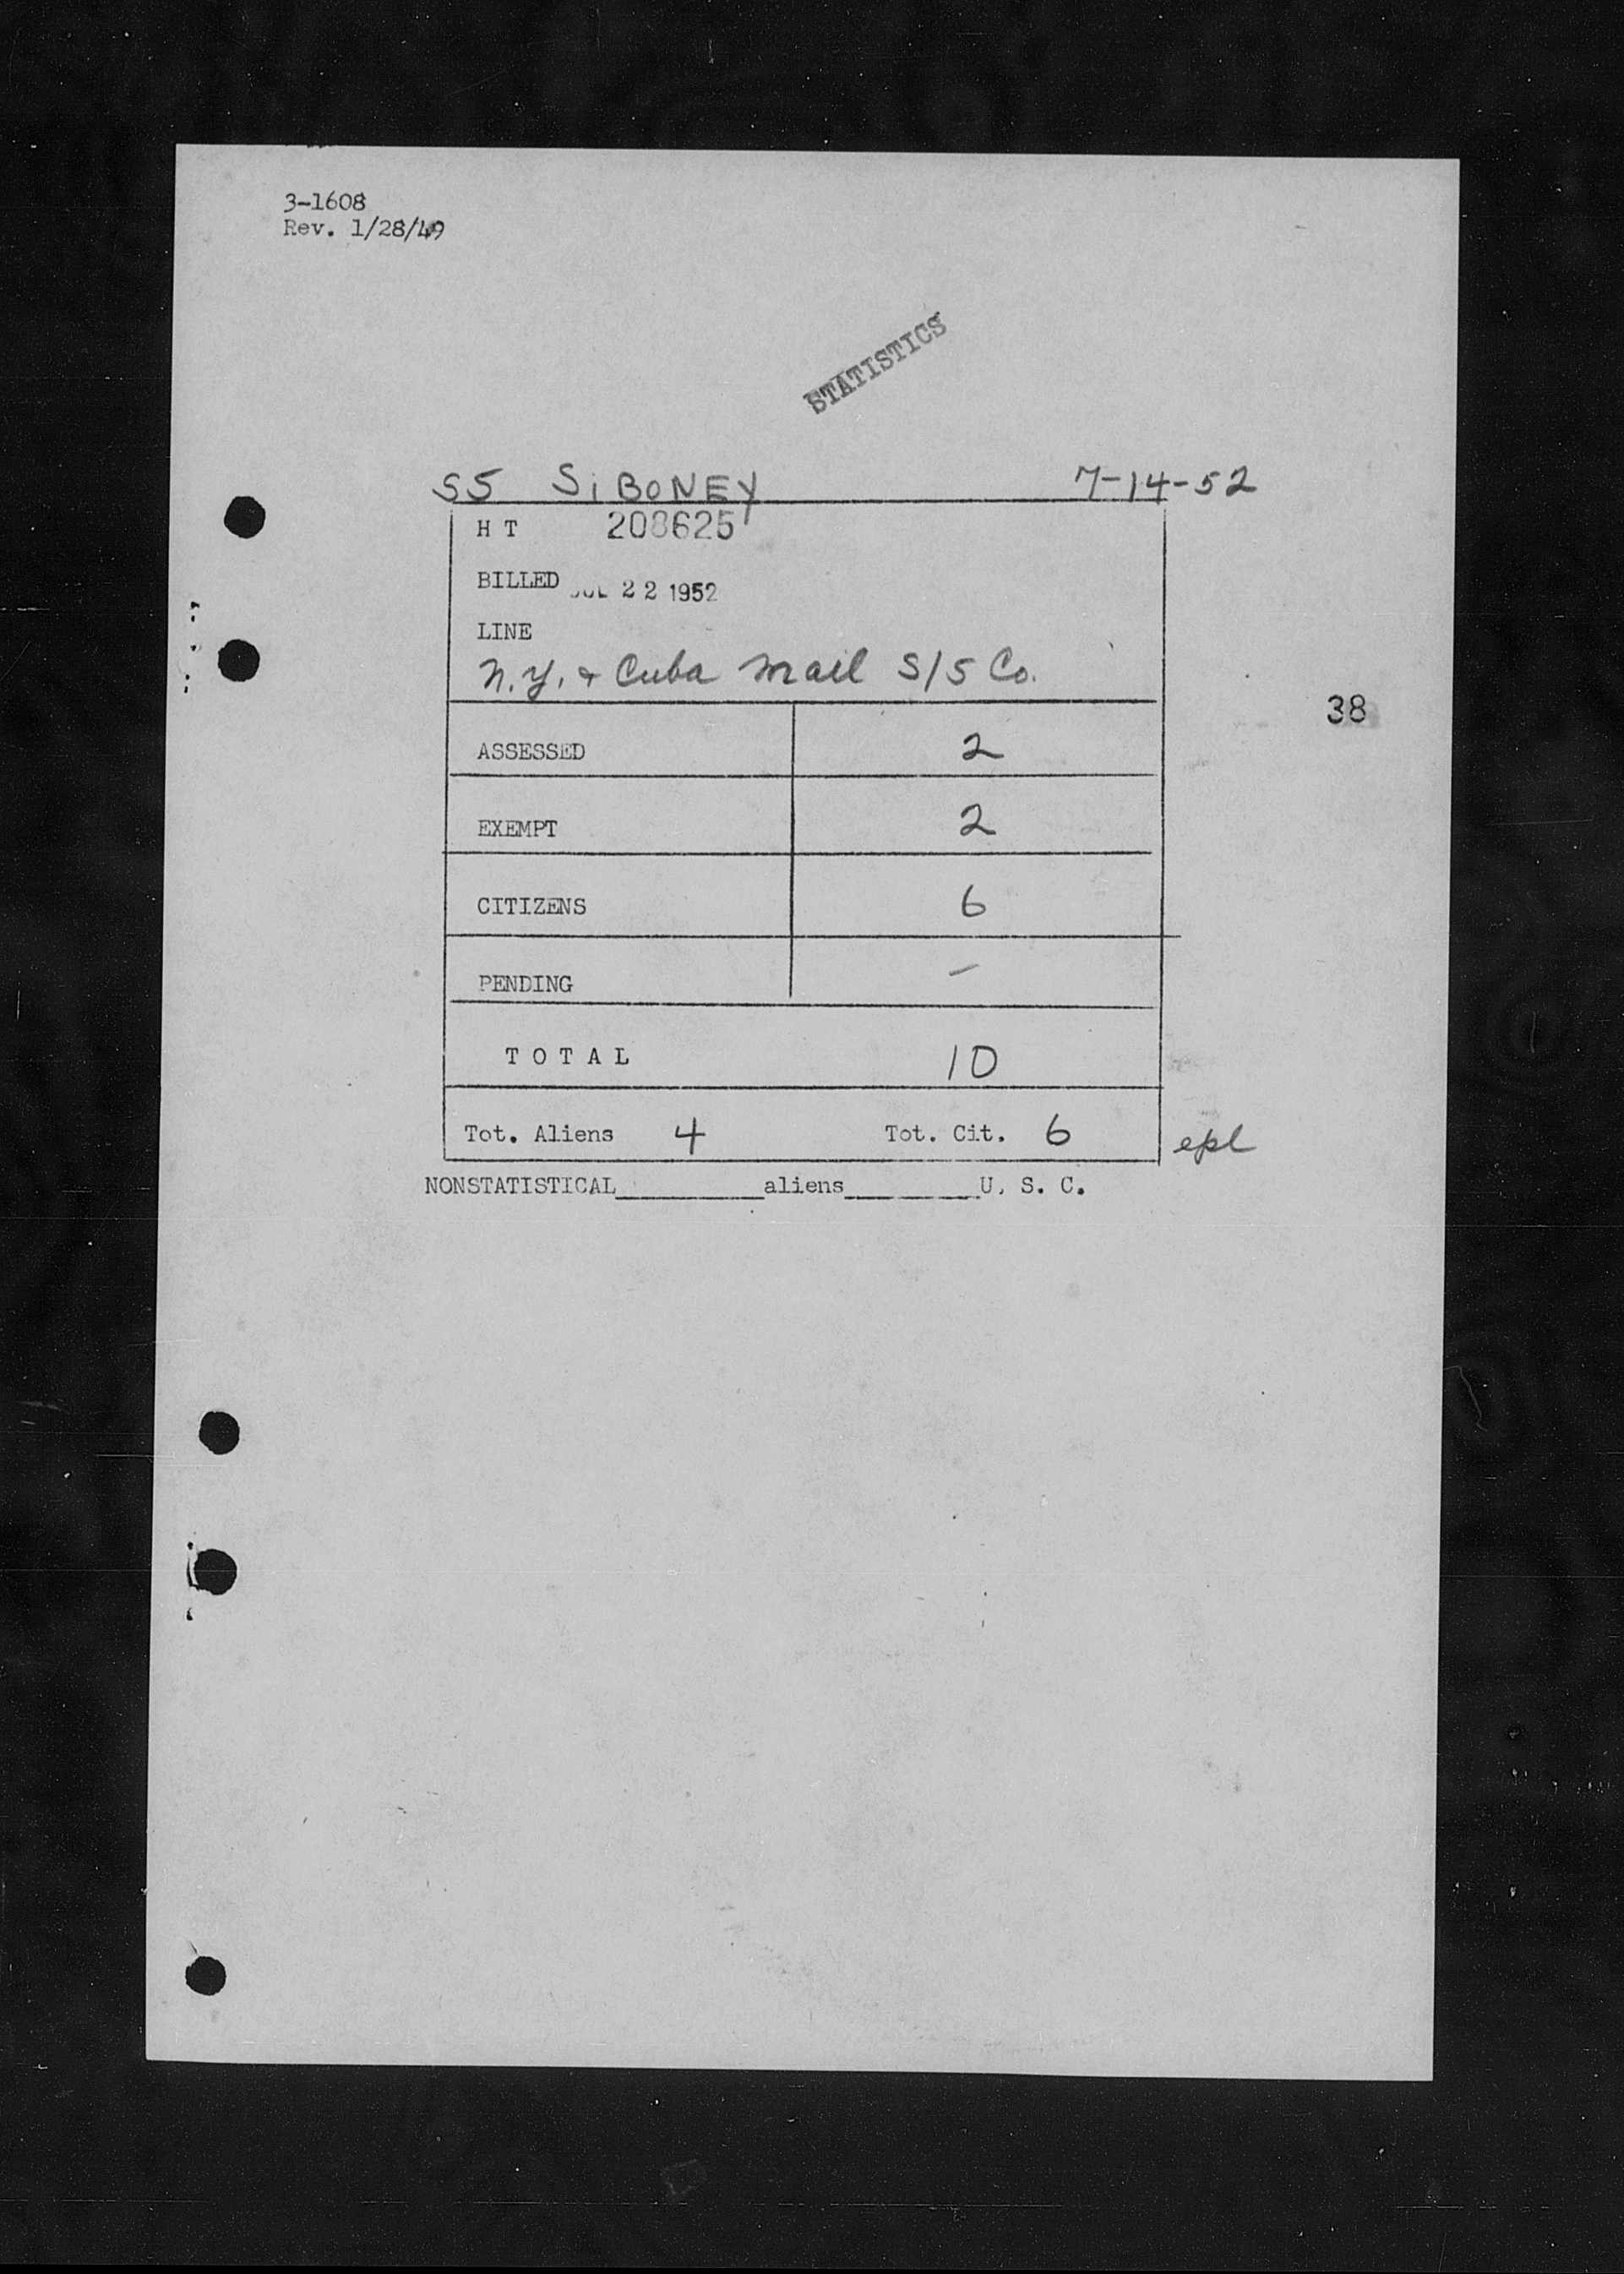 3-1608
Rev. 1/28/49
STATISTICS
SS SiBONEY 7-14-52
H T 208625
BILLED JUL 22 1952
LINE
N.Y. & Cuba Mail S/S Co.
38
ASSESSED 2
EXEMPT 2
CITIZENS 6
PENDING –
T O T A L 10
Tot. Aliens 4 Tot. Cit. 6 epl
NONSTATISTICAL__________aliens_________U. S. C.